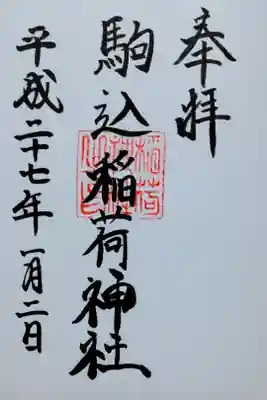 奉拝
駒込稲荷神社
平成二十七年一月二日